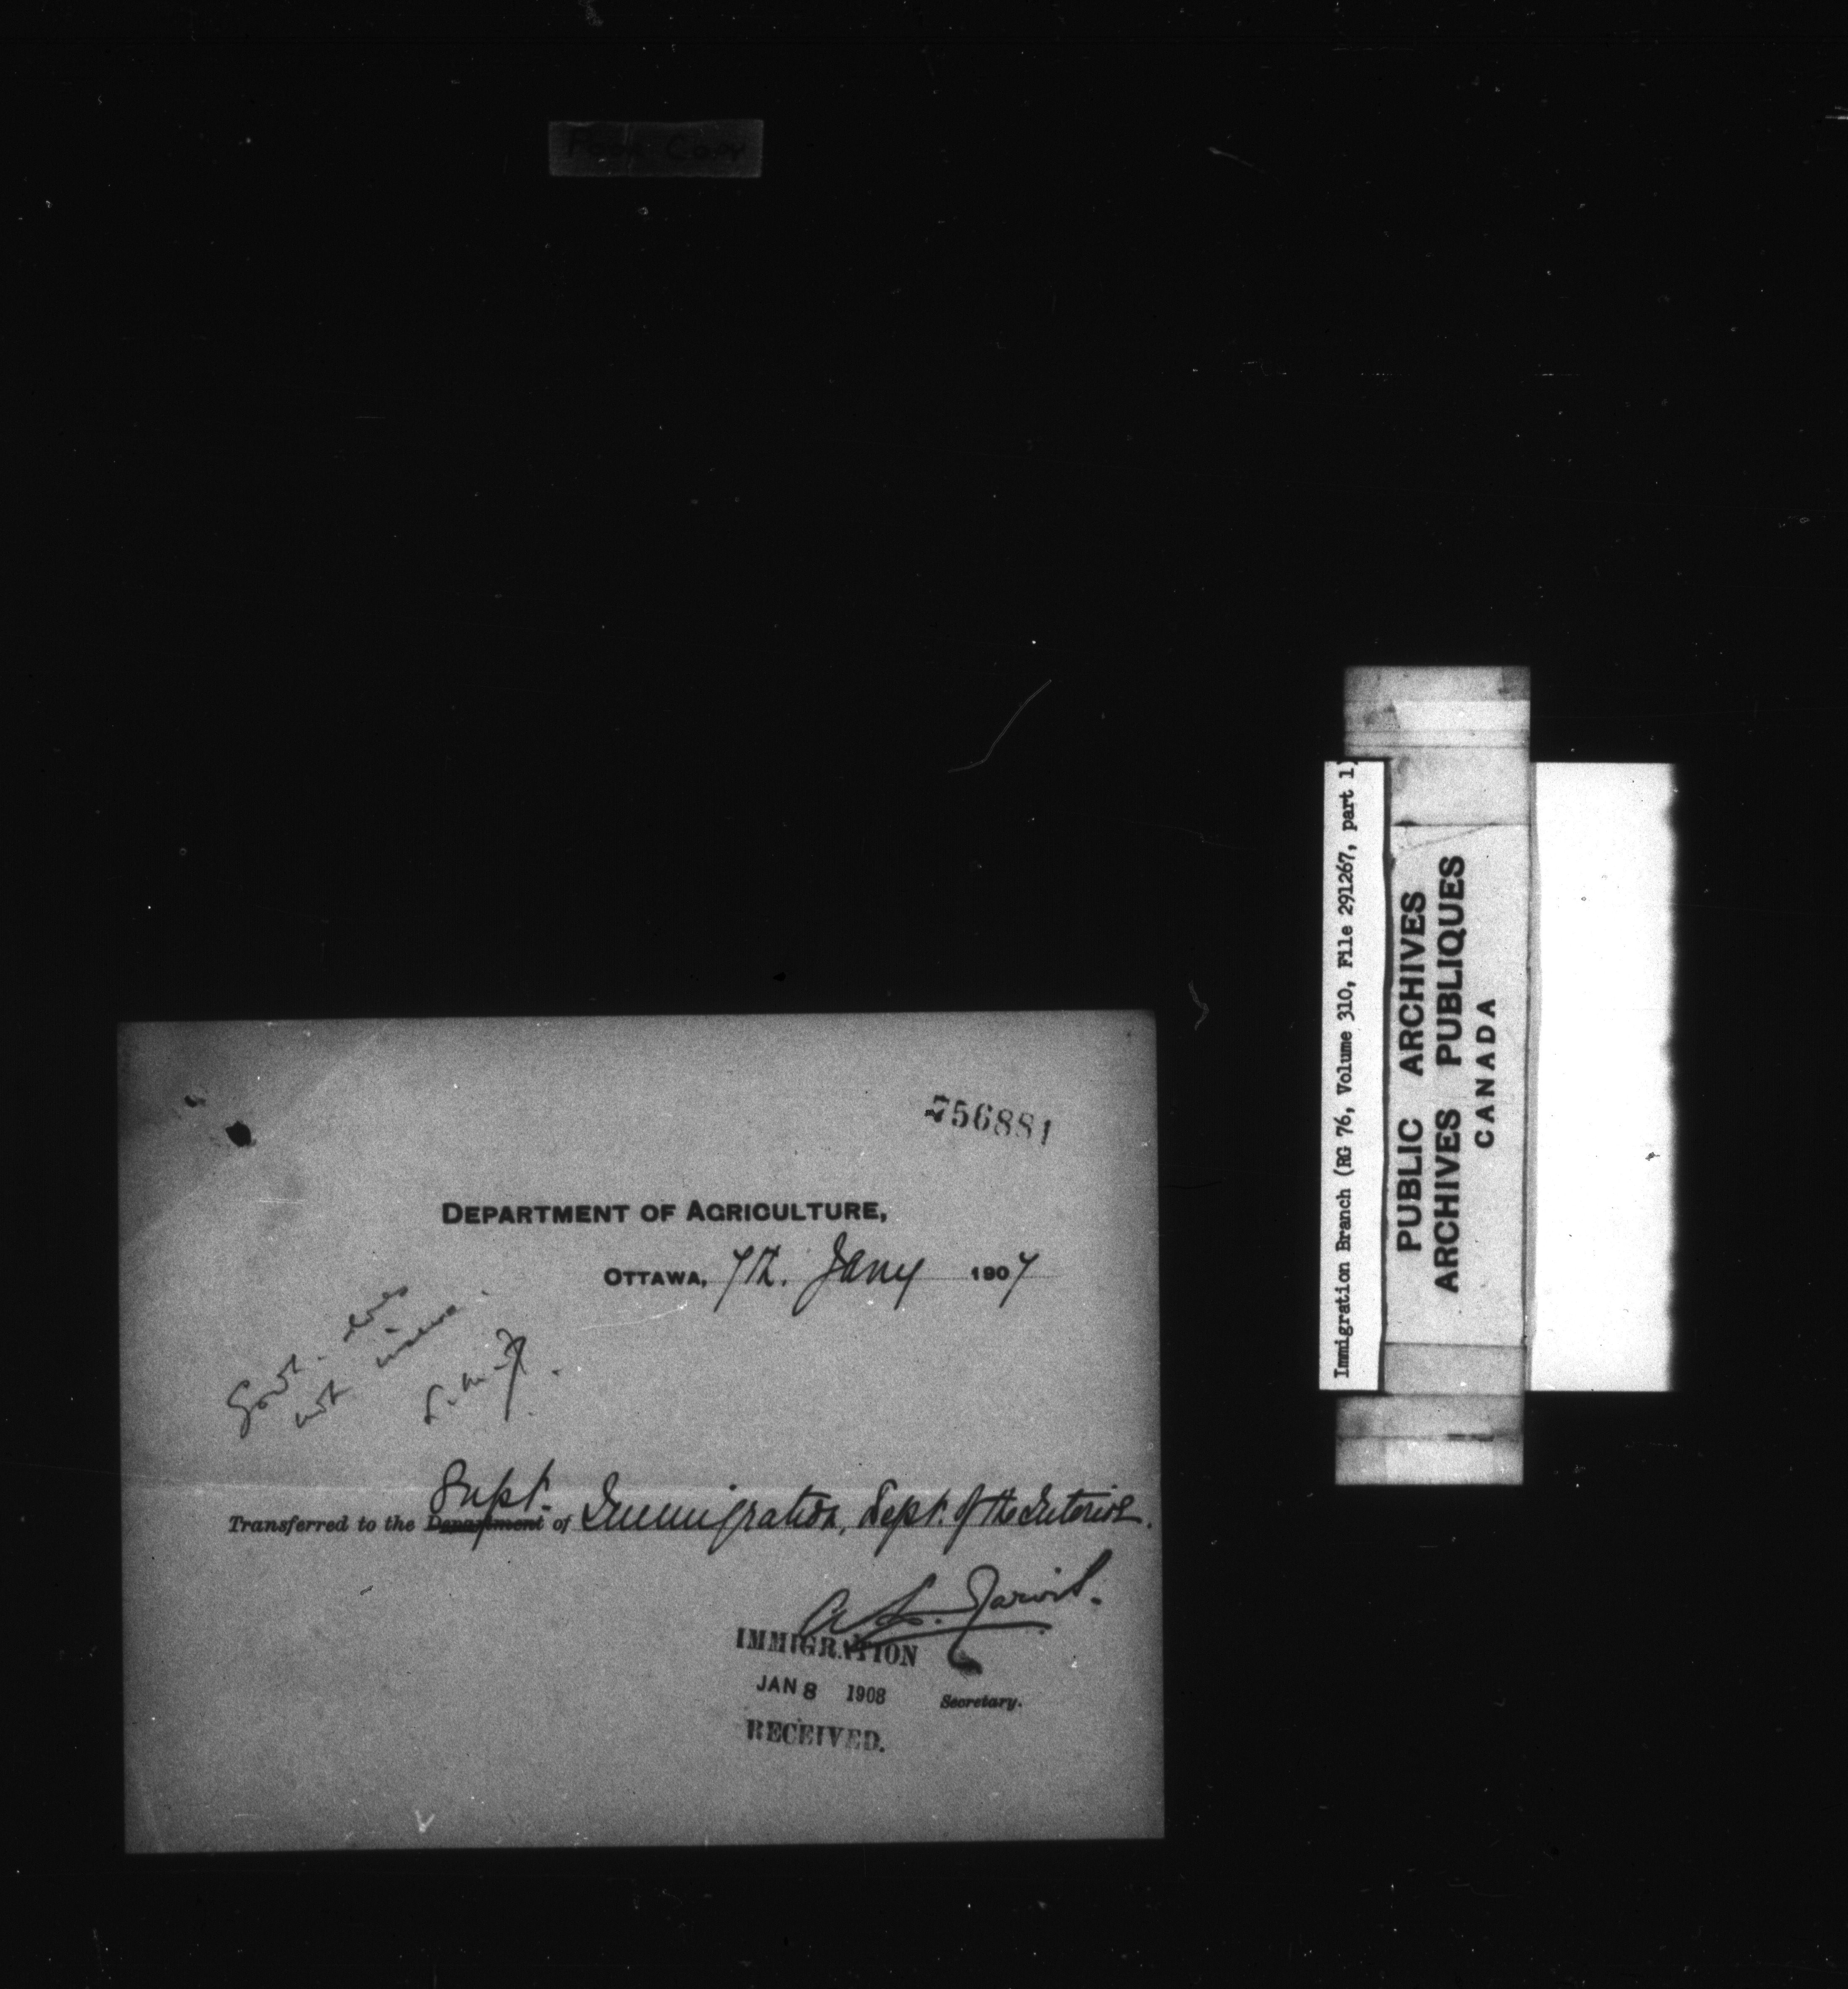 Poor Copy
756881
DEPARTMENT OF AGRICULTURE,
OTTAWA, 7th. Jany 1907
Govt. does
not
Supt.
Transferred to the Department of Immigration, Dept. of the Interior.
A. L. Jarvis.
IMMIGRATION
JAN 8 1908
Secretary.
RECEIVED.
Immigration Branch (RG 76, Volume 310, File 291267, part 1)
PUBLIC ARCHIVES
ARCHIVES PUBLIQUES
CANADA